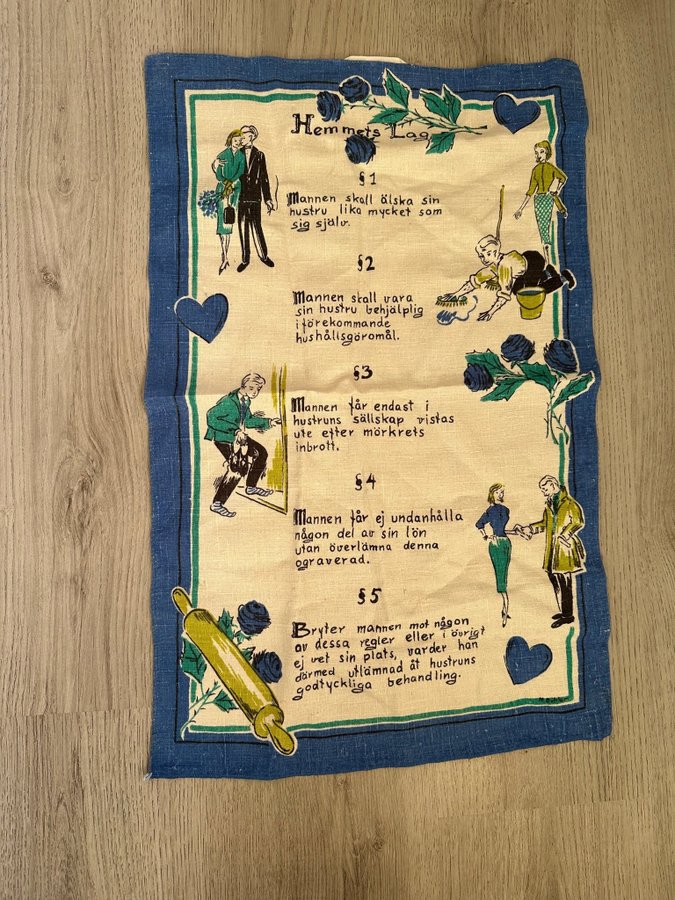 Hemmets Lag
§1
Mannen skall älska sin
hustru lika mycket som
sig själv.
§2
Mannen skall vara
sin hustru behjälplig
i förekommande
hushållsgöromål.
§3
Mannen får endast i
hustruns sällskap vistas
ute efter mörkrets
inbrott.
§4
Mannen får ej undanhålla
någon del av sin lön
utan överlämna denna
ograverad.
§5
Bryter mannen mot någon
av dessa regler eller i övrigt
ej vet sin plats, varder han
därmed utlämnad åt hustruns
godtyckliga behandling.